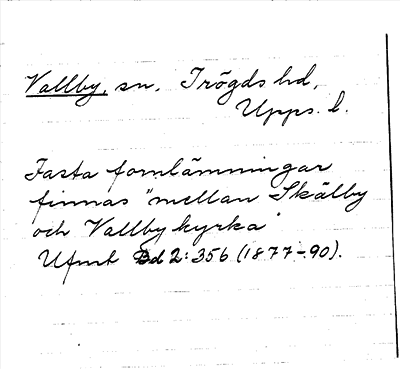 Vallby, sn, Trögds hd,
Upps. l.
Fasta fornlämningar
finnas "mellan Skälby
och Vallby kyrka"
Ufmt Bd 2: 356 (1877-90).